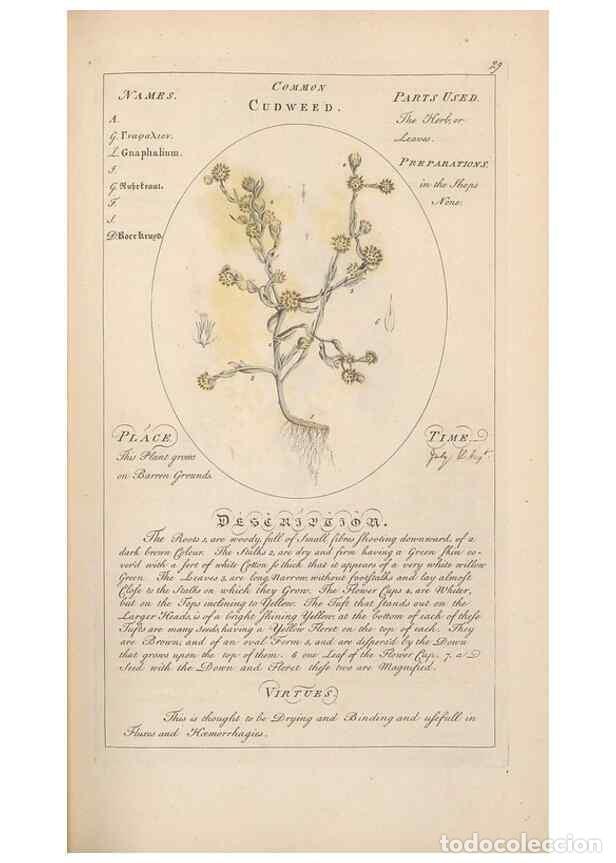 29
COMMON
CUDWEED.
NAMES.
A.
G. Γναφαλιον.
L. Gnaphalium.
I.
G. Ruhrkraut.
F.
S.
D. Roer Kruyd.
PARTS USED.
The Herb, or
Leaves.
PREPARATIONS.
in the Shops
None.
PLACE.
This Plant grows
on Barren Grounds.
TIME.
July & Augt.
DESCRIPTION.
The Roots 1, are woody, full of Small fibres ſhooting downward, of a
dark brown Colour. The Stalks 2, are dry and firm having a Green ſkin co-
ver'd with a ſort of white Cotton ſo thick that it appears of a very white willow
Green. The Leaves 3, are long Narrow without footſtalks and lay almoſt
Cloſe to the Stalks on which they Grow. The Flower Cups 4, are Whiter,
but on the Tops inclining to Yellow. The Tuft that ſtands out on the
Larger Heads, is of a bright ſhining Yellow, at the bottom of each of theſe
Tufts are many ſeeds, having a Yellow Floret on the top of each. They
are Brown, and of an oval Form 5, and are diſperſed by the Down
that grows upon the top of them. 6 one Leaf of the Flower Cup. 7. a
Seed with the Down and Floret theſe two are Magnified.
VIRTUES.
This is thought to be Drying and Binding and uſefull in
Fluxes and Hæmorrhagies.
todocoleccion